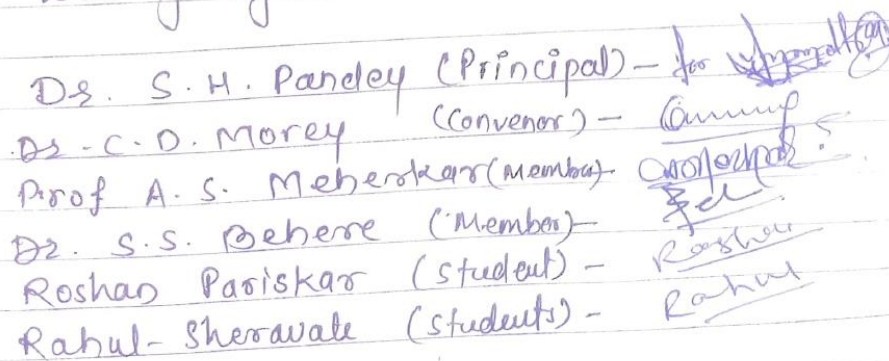 Dr. S. H. Pandey (Principal) - for
Dr. C. D. Morey (Convenor) -
Prof A. S. Meherkar (Member)-
Dr. S. S. Behere (Member)-
Roshan Pariskar (student) - Roshan
Rahul - Sheravale (students) - Rahul